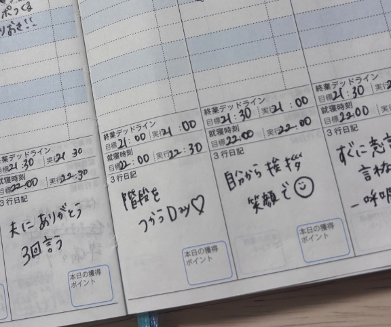 終業デッドライン
目標 21:30 実行 21:30
就寝時刻
目標 22:00 実行 22:30
3行日記
夫にありがとう
3回言う
本日の獲得
ポイント
終業デッドライン
目標 21:00 実行 21:00
就寝時刻
目標 22:00 実行 22:30
3行日記
階段を
つかうDay♡
本日の獲得
ポイント
終業デッドライン
目標 21:30 実行 21:30
就寝時刻
目標 22:00 実行 22:00
3行日記
自分から挨拶
笑顔で
本日の獲得
ポイント
終業デッドライン
目標 21:30
就寝時刻
目標 22:00
3行日記
すぐに